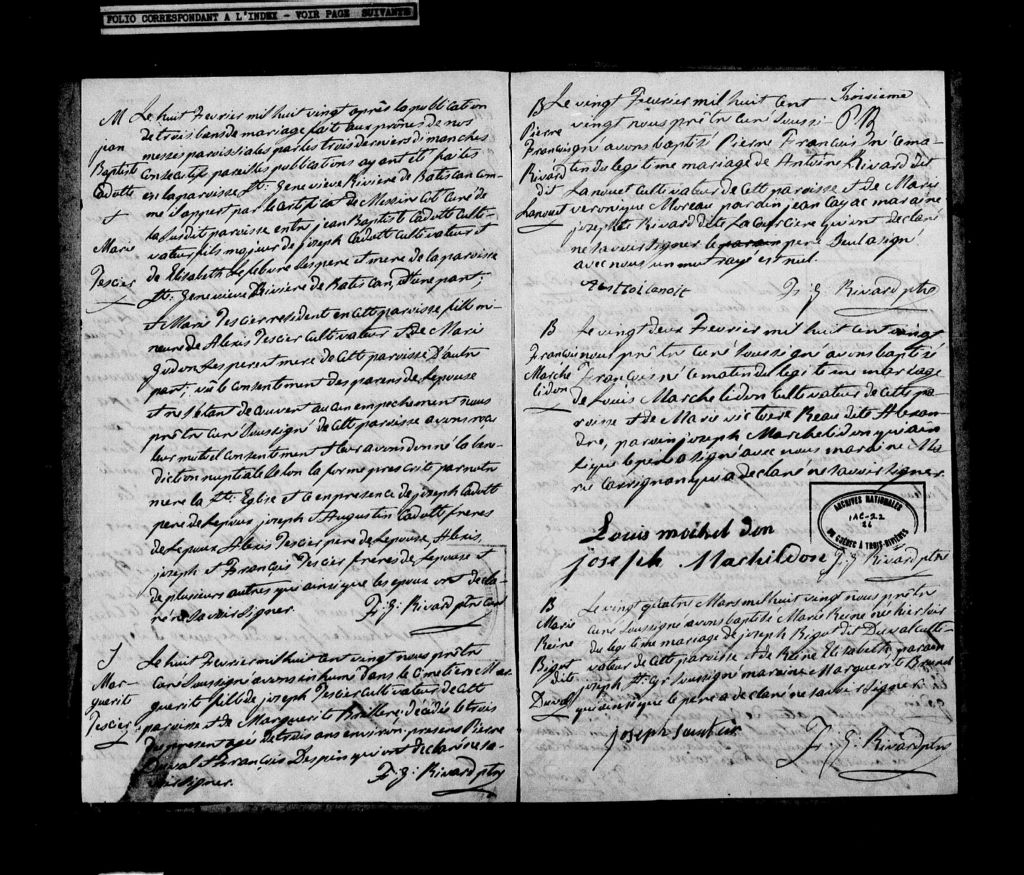 FOLIO CORRESPONDANT A L'INDEX - VOIR PAGE SUIVANTE
M
jean
Baptiste
Cadotte
et
Marie
Tescier
Le huit Fevrier mil huit vingt après la publication
de trois bans de mariage fait aux prônes de nos
messes paroissiales par les trois derniers dimanches
Consecutifs pareilles publications ayant été faites
en la paroisse Ste. Genevieve Riviere de Batiscan com-
me il appert par le certificat de Messire Cot Curé de
la susdit paroisse entre jean Baptiste Cadotte culti-
vateur fils majeur de joseph Cadott cultivateur et
de Elisabeth Lefebvre les pere et mere de la paroisse
Ste. Genevieve Riviere de Batiscan, d'une part;
et Marie Tescier residente en cette paroisse fille mi-
neure de Alexis Tescier Cultivateur et de Marie
Gudon Les pere et mere de cette paroisse D'autre
part; vû le consentement des parens de lepouse
et ne s'étant decouvert aucun empechement nous
prêtre curé soussigné de cette paroisse avons reçu
leur mutuel consentement et leur avons donné la bene-
diction nuptiale selon la forme prescrite par notre
mere la Ste. Eglise et ce en presence de joseph Cadott
pere de lepoux joseph et Augustin Cadott freres
de lepoux Alexis Tescier pere de lepouse, Alexis,
joseph et François Tescier freres de lepouse et
de plusieurs autres qui ainsi que les epoux ont decla-
ré ne savoir signer. F. G: Rivard ptre curé
S
Mar-
guerite
Tescier
Le huit Fevrier mil huit cent vingt nous prêtre
Curé Soussigné avons inhumé dans le Cimetiere Mar-
guerite fille de joseph Tescier cultivateur de cette
paroisse et de Marguerite decedée le trois
du present agée de trois ans environ, presens Pierre
Duval et François Despins qui ont declaré ne sa-
voir signer. F: G: Rivard ptre
Troisieme
P R
B
Pierre
François
Rivard
dit
Lanouet
Le vingt Fevrier mil huit cent
vingt nous prêtre curé soussi-
gné avons baptisé Pierre François né ce ma-
tin du legitime mariage de Antoine Rivard dit
Lanouet Cultivateur de cette paroisse et de Marie
veronique Moreau parain jean Cayac maraine
josephte Rivard dite La Coursiere qui ont declaré
ne savoir signer le parain pere seul a signé
avec nous un mot rayé est nul.
F: G Rivard ptre
B
François
Marche
lidon
Le vingt deux Fevrier mil huit cent vingt
nous prêtre curé soussigné avons baptisé
François né ce matin du legitime mariage
de Louis Marchelidon cultivateur de cette pa-
roisse et de Marie victoire Beau dite Alexan-
dre, parain joseph Marchelidon qui ain-
si que le pere a signé avec nous maraine Ma-
rie Carrignan qui a declaré ne savoir signer.
Louis mochel don
joseph Machildon F: G: Rivard ptre
ARCHIVES NATIONALES
DU QUÉBEC À TROIS-RIVIÈRES
B
Marie
Reine
Bigot
dite
Duval
Le vingt quatre Mars mil huit vingt nous prêtre
curé soussigné avons baptisé Marie Reine née hier soir
du legitime mariage de joseph Bigot dit Duval culti-
vateur de cette paroisse et de Reine Elisabeth parain
joseph soussigné maraine Marguerite Brunel
qui ainsi que le pere a declaré ne savoir signer.
F: G: Rivard ptre